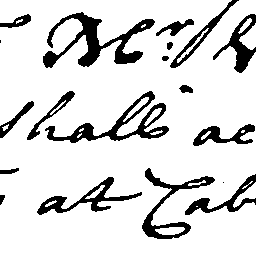 Mr.
shall ac
at Cab